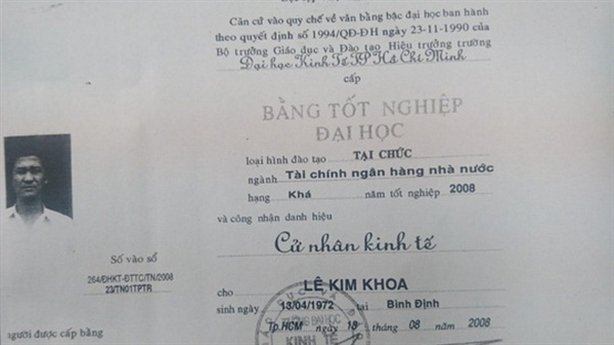 Căn cứ vào quy chế về văn bằng bậc đại học ban hành
theo quyết định số 1994/QĐ-ĐH ngày 23-11-1990 của
Bộ trưởng Giáo dục và Đào tạo Hiệu trưởng trường
Đại học Kinh Tế TP Hồ Chí Minh
cấp
BẰNG TỐT NGHIỆP
ĐẠI HỌC
loại hình đào tạo TẠI CHỨC
ngành Tài chính ngân hàng nhà nước
hạng Khá năm tốt nghiệp 2008
và công nhận danh hiệu
Cử nhân kinh tế
cho LÊ KIM KHOA
sinh ngày 13/04/1972 tại Bình Định
Tp.HCM ngày 18 tháng 08 năm 2008
TRƯỜNG ĐẠI HỌC
KINH TẾ
Số vào sổ
264/ĐHKT-ĐTTC/TN/2008
23/TN01TPTR
người được cấp bằng